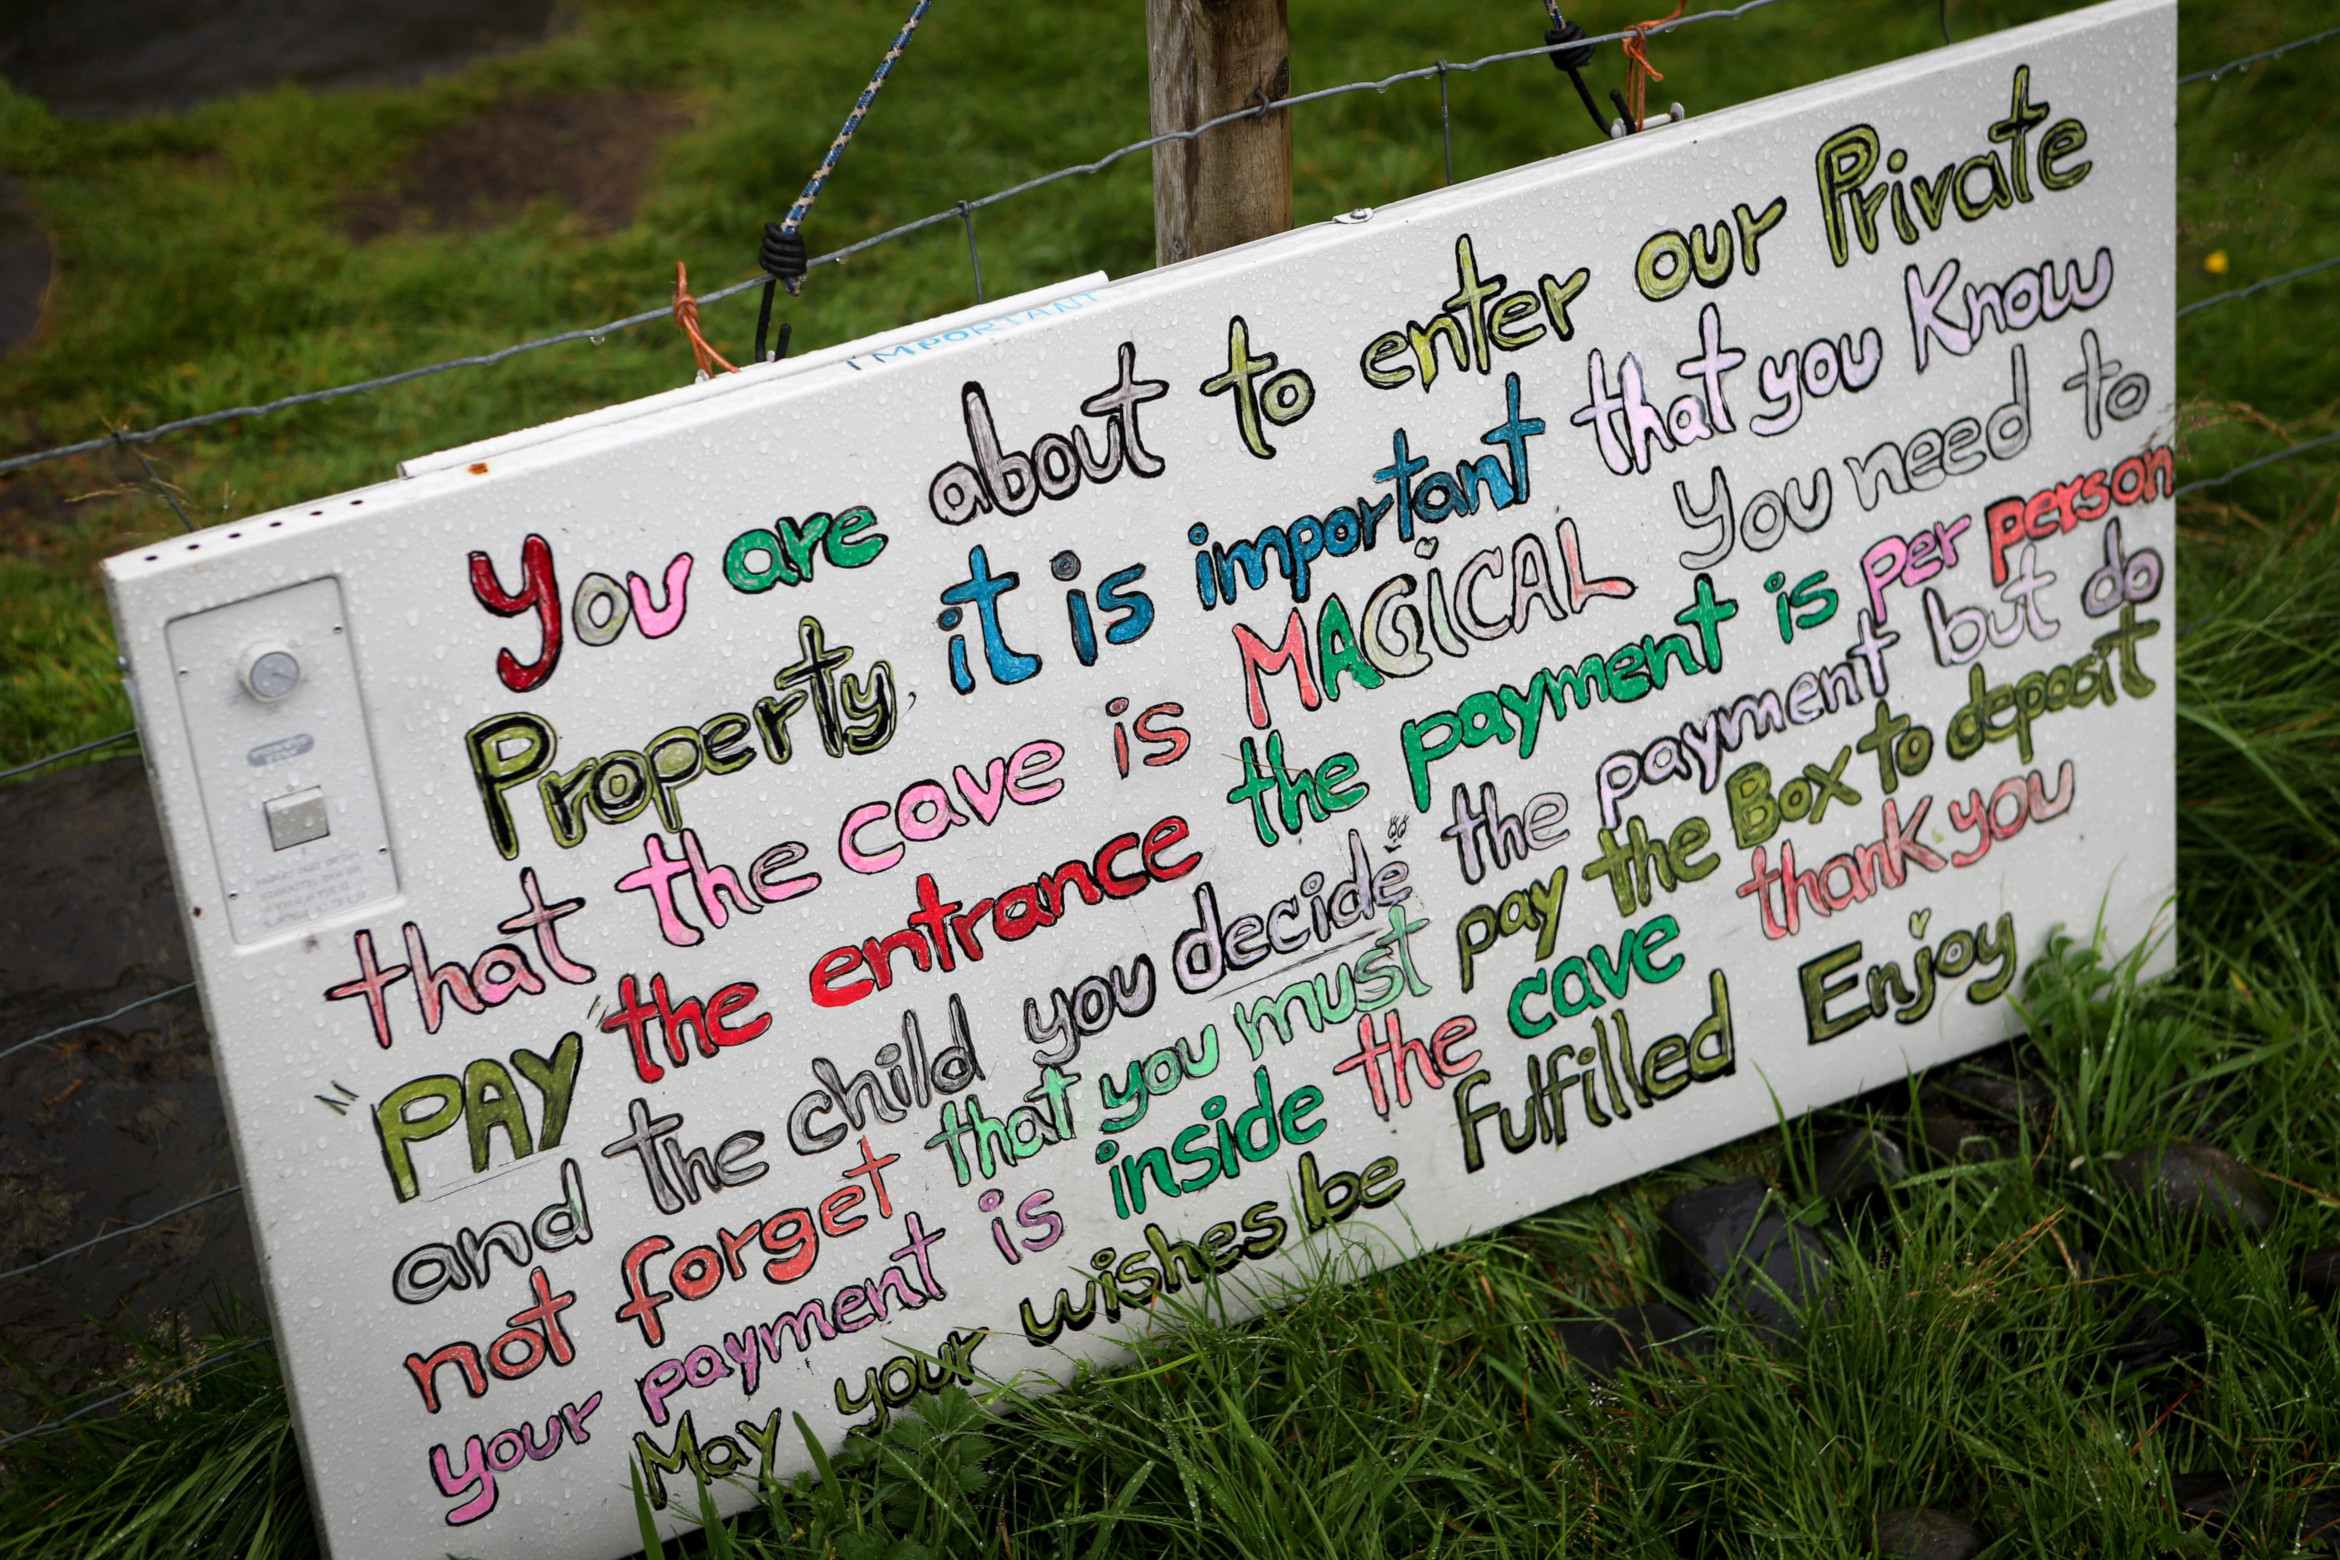 IMPORTANT
You are about to enter our Private
Property, it is important that you Know
that the cave is MAGiCAL you need to
"PAY" the entrance the payment is per person
and the child you decide the payment but do
not forget that you must pay the Box to deposit
your payment is inside the cave thank you
May your wishes be Fulfilled Enjoy